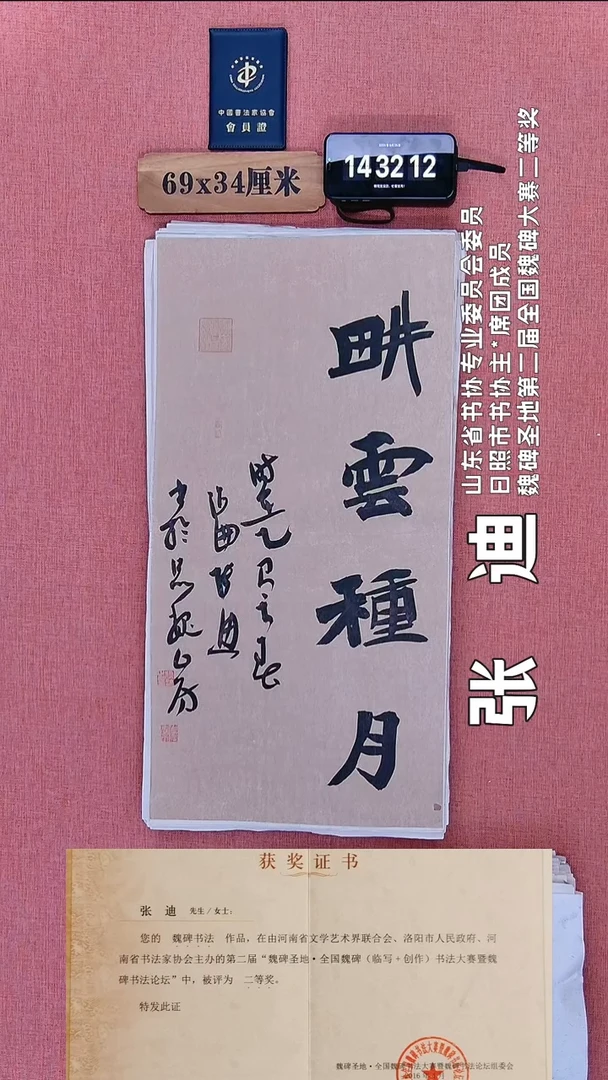 中國書法家協會
會員證
69x34厘米
14 32 12
山东省书协专业委员会委员
日照市书协主*席团成员
魏碑圣地第二届全国魏碑大赛二等奖
张 迪
畊雲種月
時在乙巳之春
海曲張迪
书於魏山房
获奖证书
张 迪 先生/女士：
您的 魏碑书法 作品，在由河南省文学艺术界联合会、洛阳市人民政府、河
南省书法家协会主办的第二届“魏碑圣地·全国魏碑（临写+创作）书法大赛暨魏
碑书法论坛”中，被评为 二等奖。
特发此证
魏碑圣地·全国魏碑书法大赛暨魏碑书法论坛组委会
2016